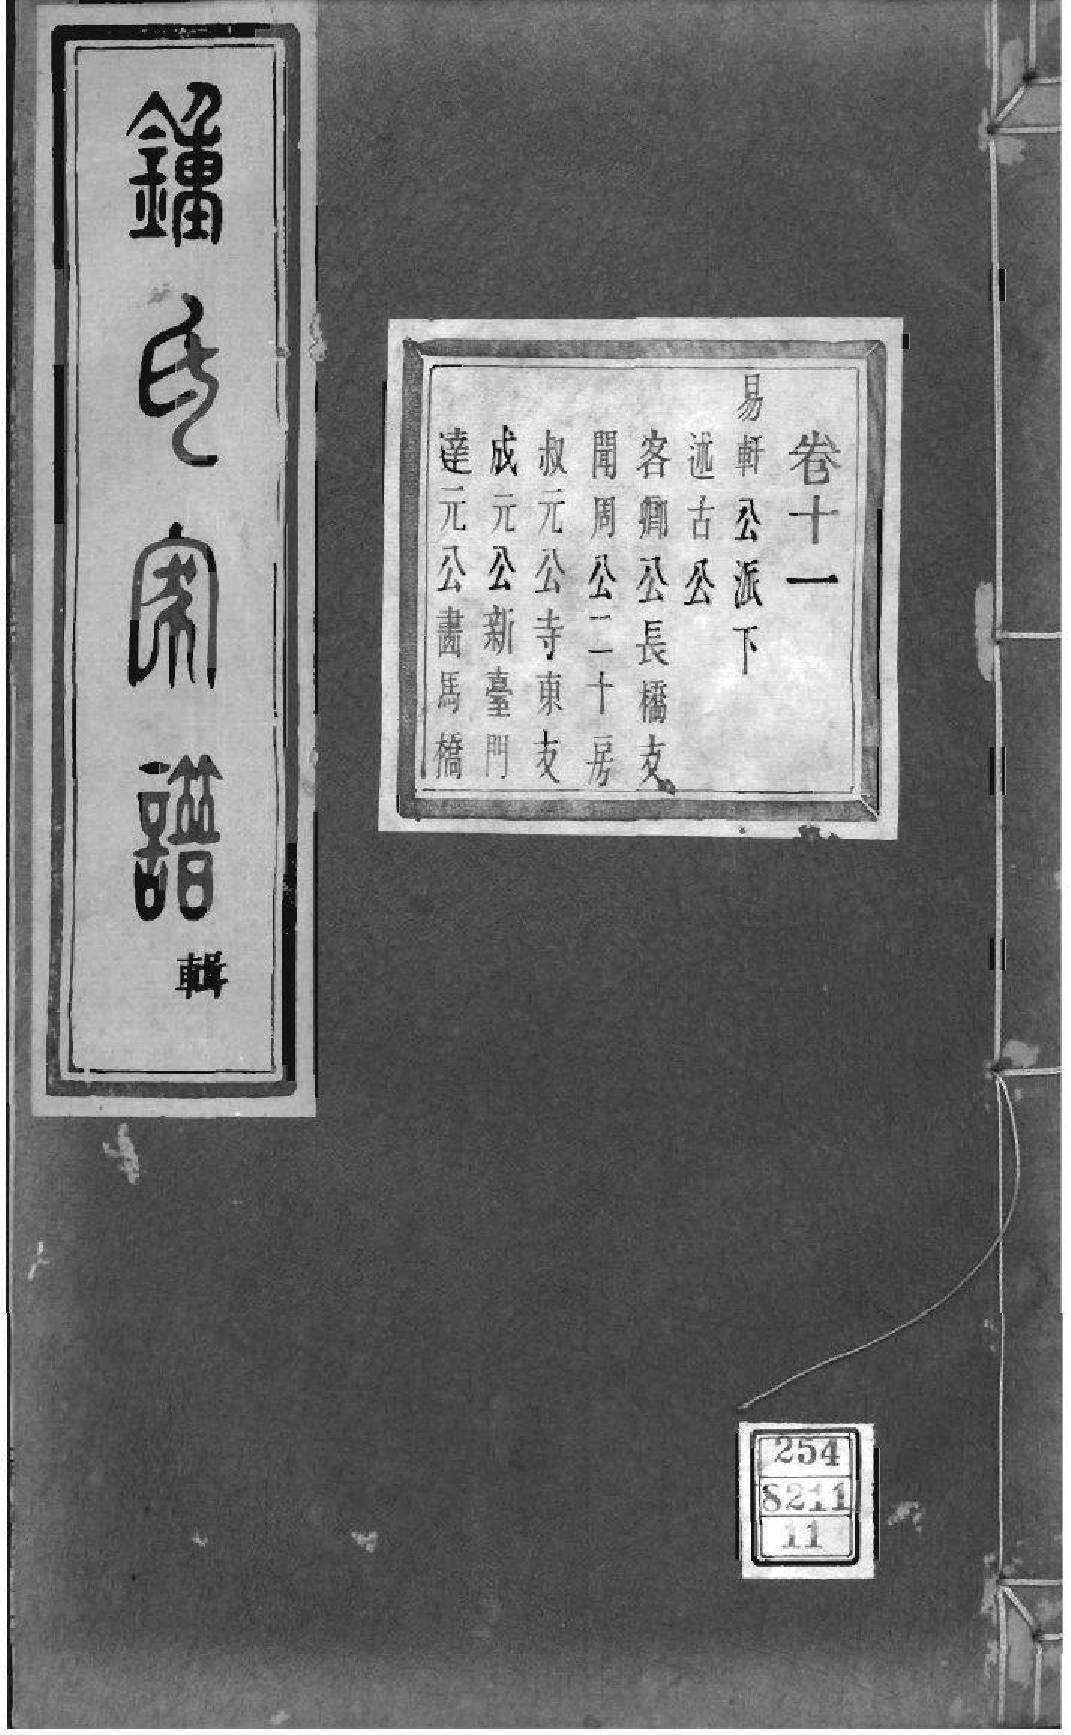 卷十一
易軒公派下
述古公
客卿公長橋支
聞周公二十房
叔元公寺東支
成元公新臺門
達元公畫馬橋
鍾氏宗譜
輯
254
8211
11